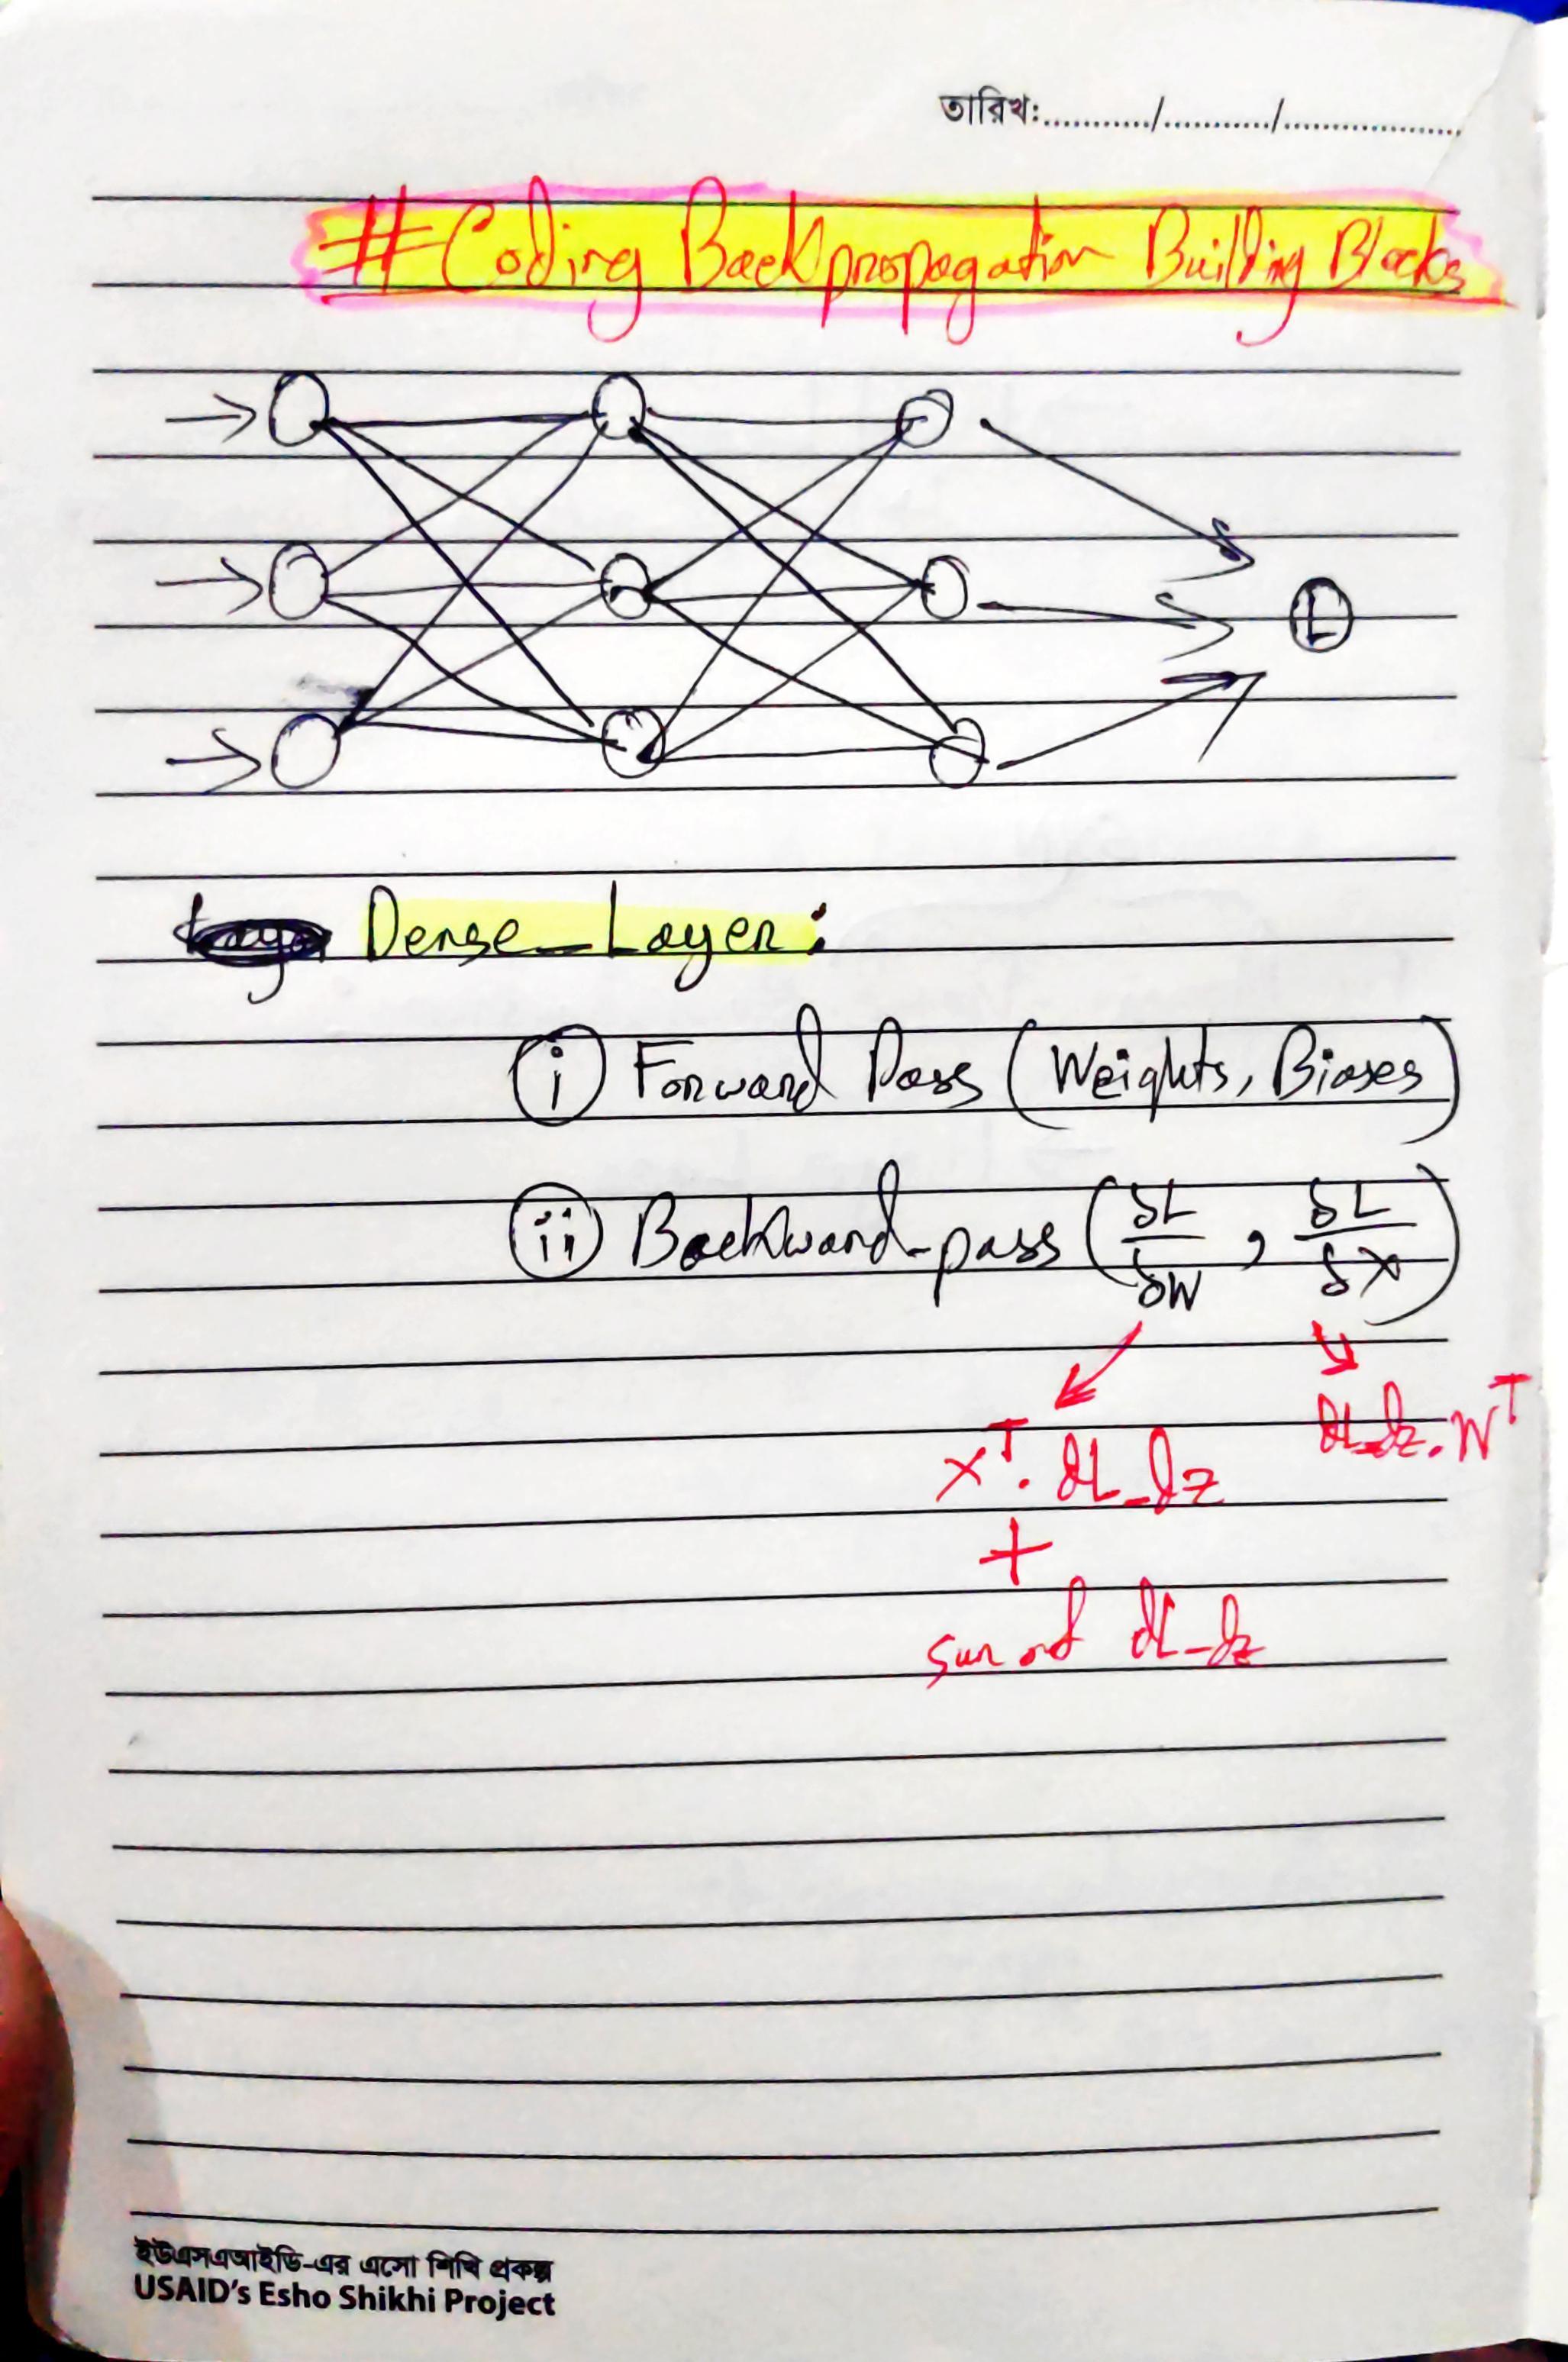 তারিখ:.........../.........../..................
#Coding Backpropagation Building Blocks
L
Dense-Layer:
(i) Forward Pass (Weights, Biases)
(ii) Backward-pass (δL/δW, δL/δX)
X^T. dL_dz
dL_dz. W^T
+
sum of dL_dz
ইউএসএআইডি-এর এসো শিখি প্রকল্প
USAID's Esho Shikhi Project